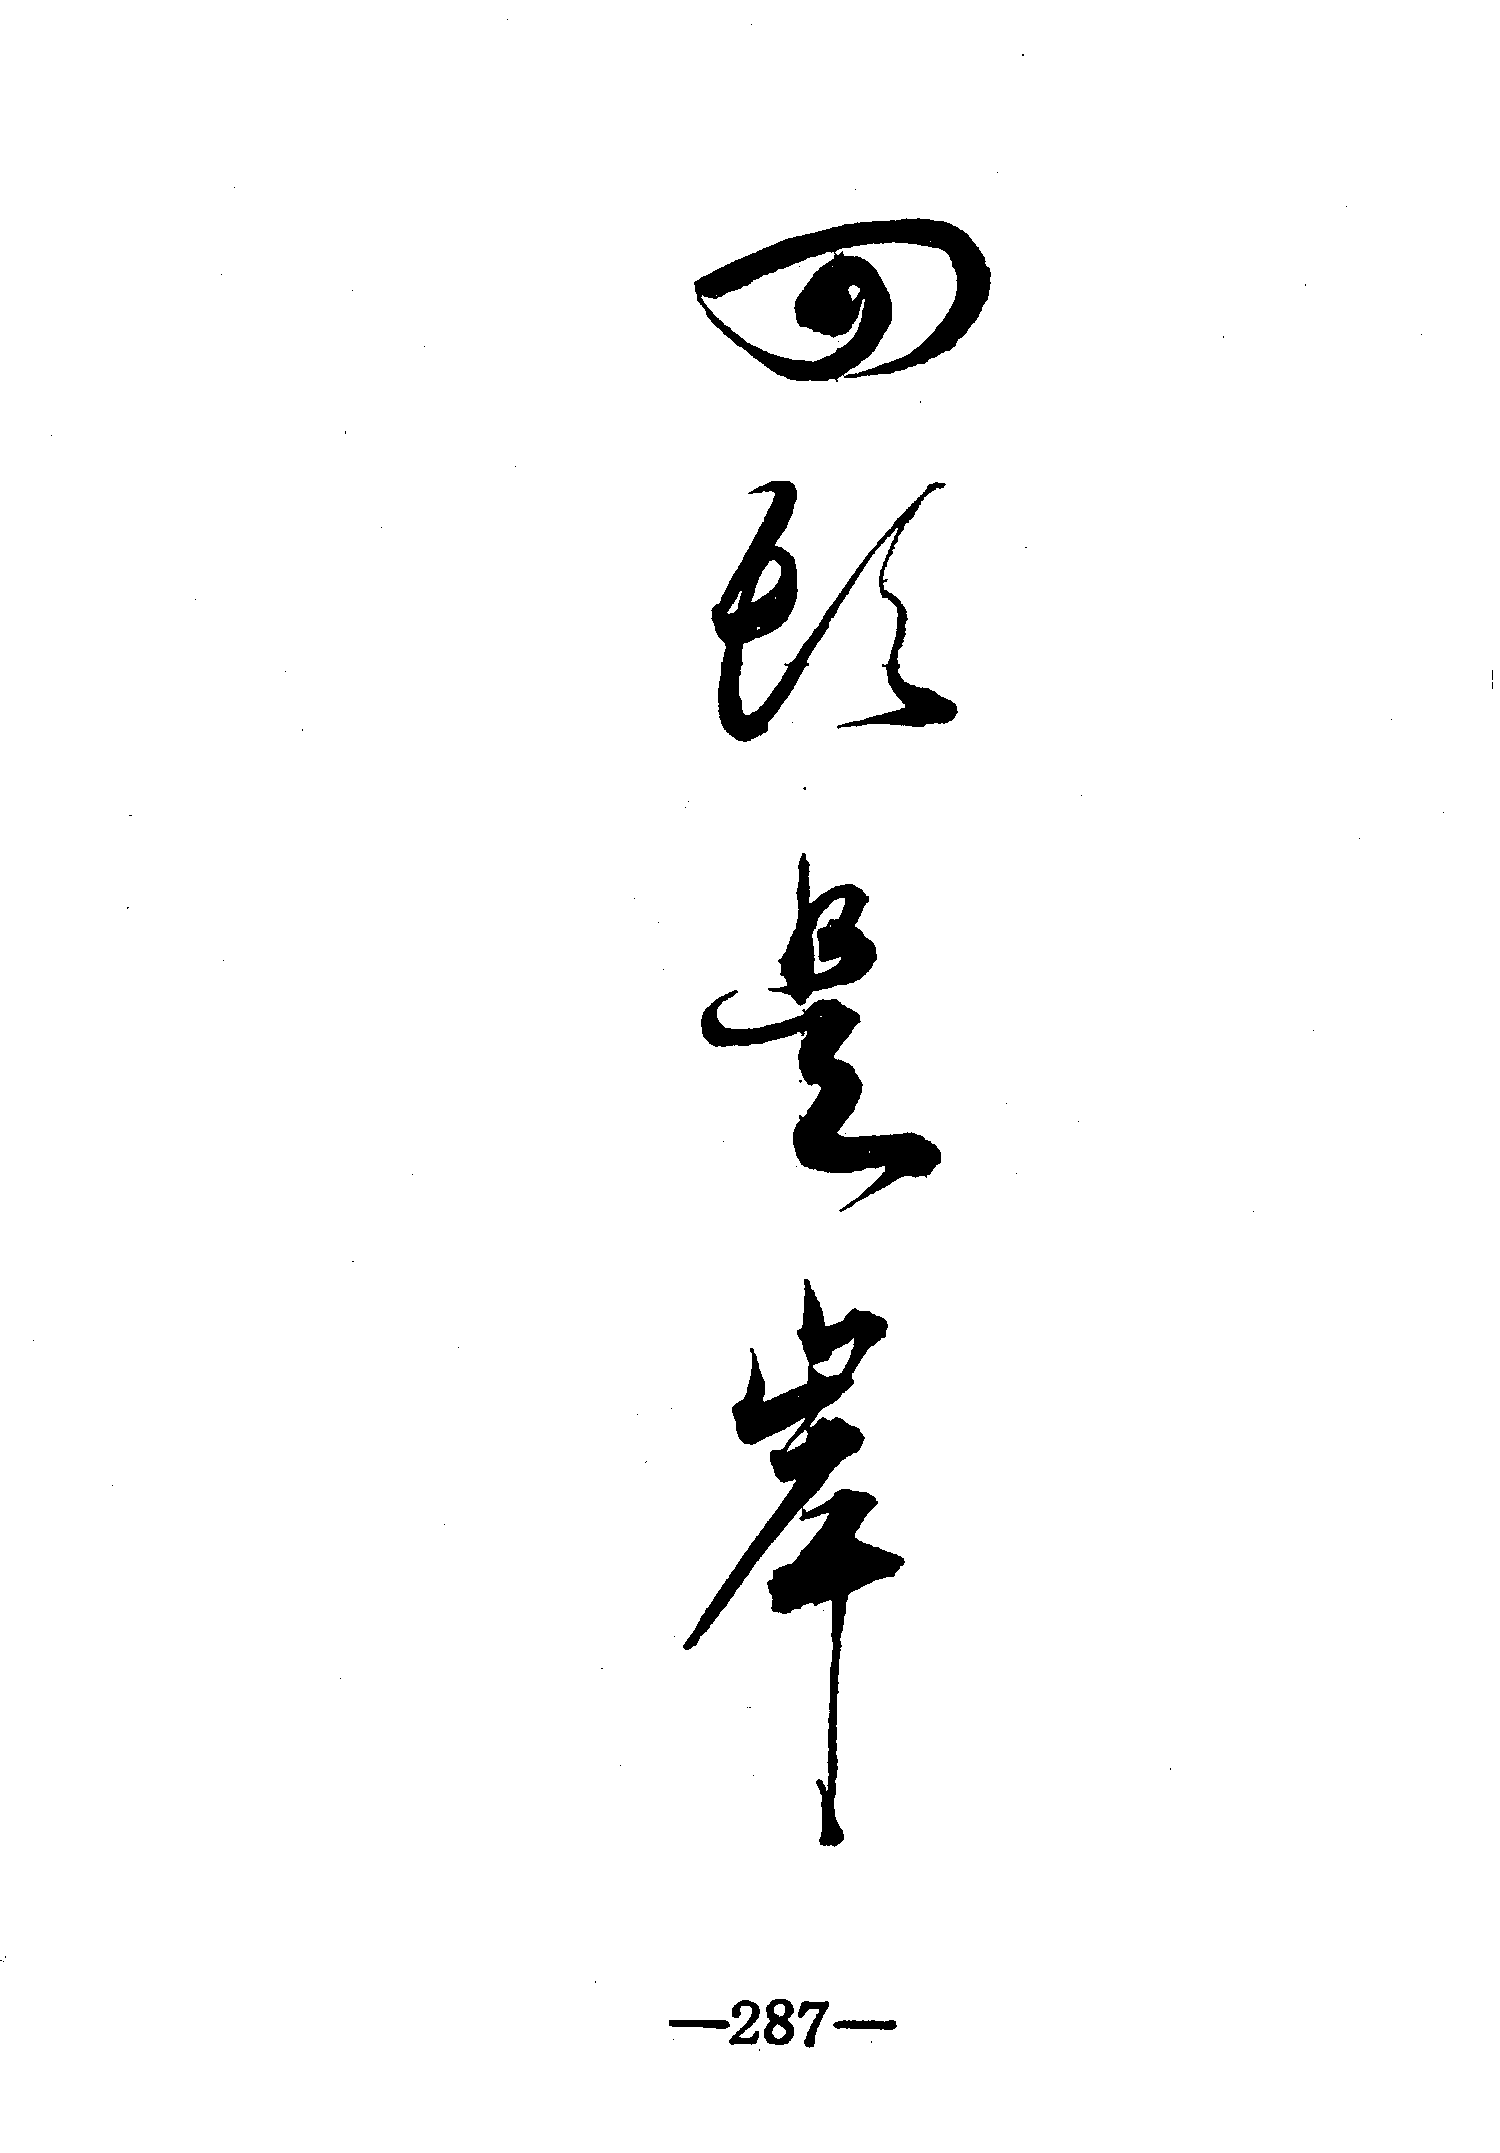 回頭是岸
—287—